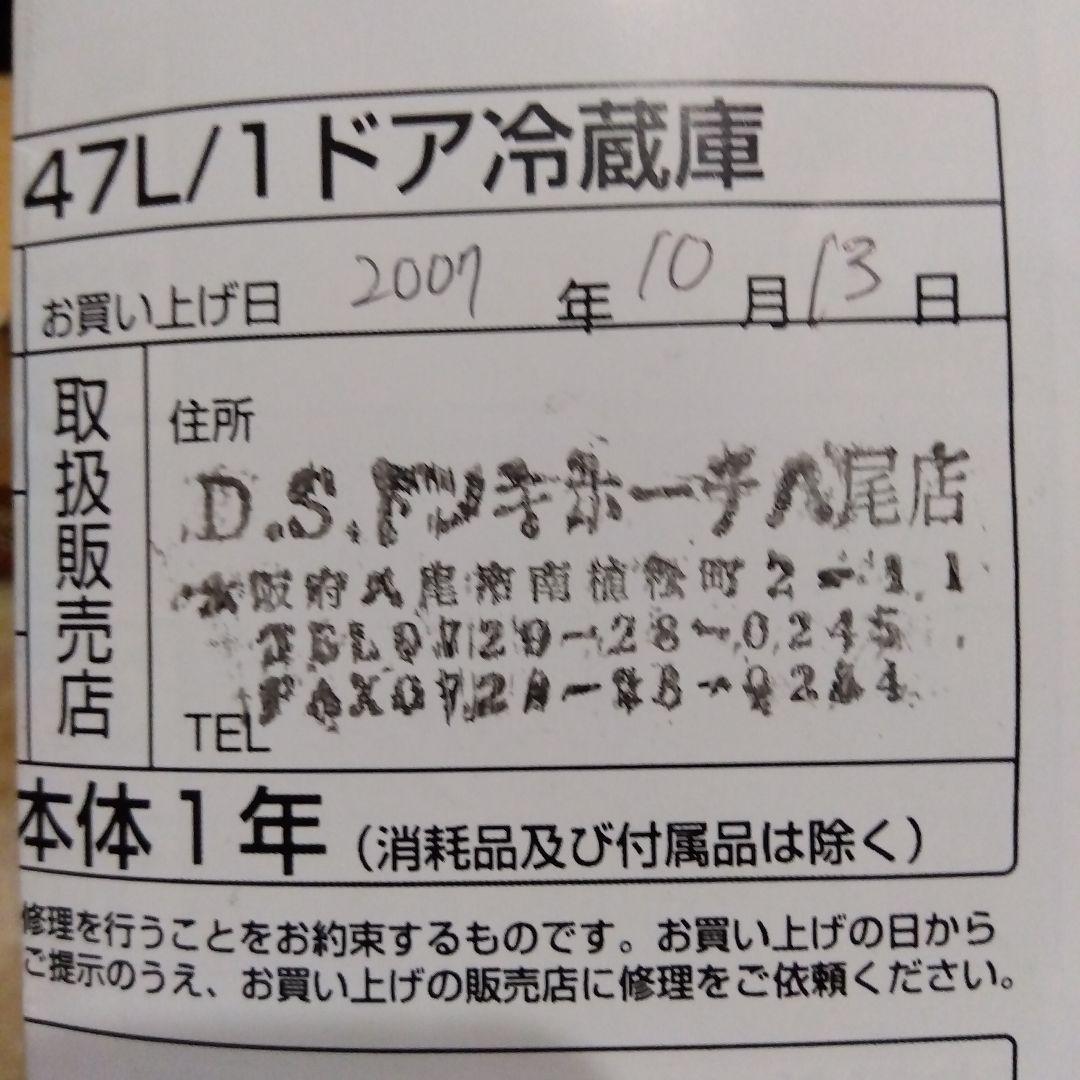 47L/1ドア冷蔵庫
お買い上げ日 2007 年 10 月 13 日
取扱販売店
住所
D.S.ドンキホーテ八尾店
大阪府八尾市南植松町2-1.1
TEL0729-28-0245
FAX0729-28-0244
TEL
本体1年（消耗品及び付属品は除く）
修理を行うことをお約束するものです。お買い上げの日から
ご提示のうえ、お買い上げの販売店に修理をご依頼ください。